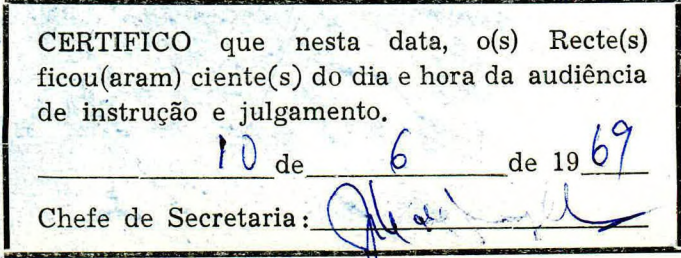 CERTIFICO que nesta data, o(s) Recte(s)
ficou(aram) ciente(s) do dia e hora da audiência
de instrução e julgamento.
10 de 6 de 1969
Chefe de Secretaria: